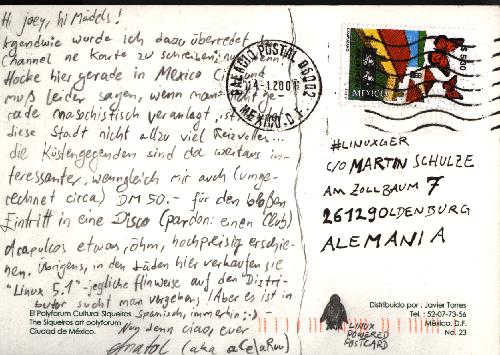 Hi joey, hi Mädels!
Irgendwie wurde ich dazu überredet
Channel ne Karte zu schreiben,
Hocke hier gerade in Mexico und
muß leider sagen, wenn man
rade masochistisch veranlagt, ist
diese Stadt nicht allzu viel Reizvolles...
die Küstengegenden sind da weitaus in-
teressanter, wenngleich mir auch (umge-
rechnet circa) DM 50.- für den bloßen
Eintritt in eine Disco (pardon: einen Club)
Acapulcos etwas, öhm, hochpreisig erschie-
nen. Übrigens, in den Läden hier verkaufen sie
"Linux 5.1" - jegliche Hinweise auf den Distri-
butor sucht man vergebens! Aber es ist in
Spanisch, immerhin :-)
Nun denn ciao, euer
(aka
El Polyforum Cultural Siqueiros
The Siqueiros art polyforum
Ciudad de México.
POSTAL 06002
14.1.200
MEXICO, D.F.
MEXICO
#LINUXGER
C/O MARTIN SCHULZE
AM ZOLLBAUM 7
26129 OLDENBURG
ALEMANIA
LINUX
POWERED
POSTCARD
Distribuido por: Javier Torres
Tel.: 52-07-73-56
México, D.F.
No. 23